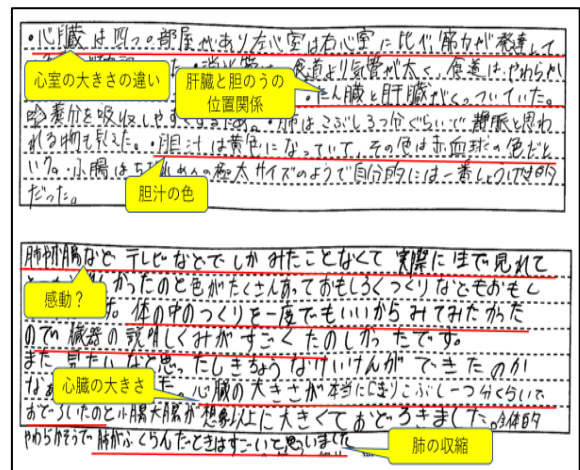 ・心臓は四つの部屋があり左心室は右心室に比べ筋力が発達して
心室の大きさの違い
食道より気管が太く、食道は、やわらか
肝臓と胆のうの
位置関係
・たん臓と肝臓がくっついていた。
養分を吸収しやすくするため。・肺はこぶし3つ分ぐらいで静脈と思わ
れる物も見えた。・胆汁は黄色になっていて、その色は赤血球の色だと
いう。・小腸は
極太サイズのようで自分的には一番しょうげき的
だった。
胆汁の色
肺や腸など テレビなどでしかみたことなくて 実際に生で見れて
かったのと色がたくさんあっておもしろくつくりなどもおもし
感動？
す。体の中のつくりを一度でもいいからみてみたかった
ので臓器の説明しくみがすごくたのしかったです。
また見たいなと思ったしきちょうなけいけんができたのか
な
た。心臓の大きさが本当ににぎりこぶし一つ分くらいで
心臓の大きさ
おどろいたのと小腸大腸が想像以上に大きくておどろきました。全体的
やわらかそうで肺がふくらんだときはすごいと思いました
肺の収縮